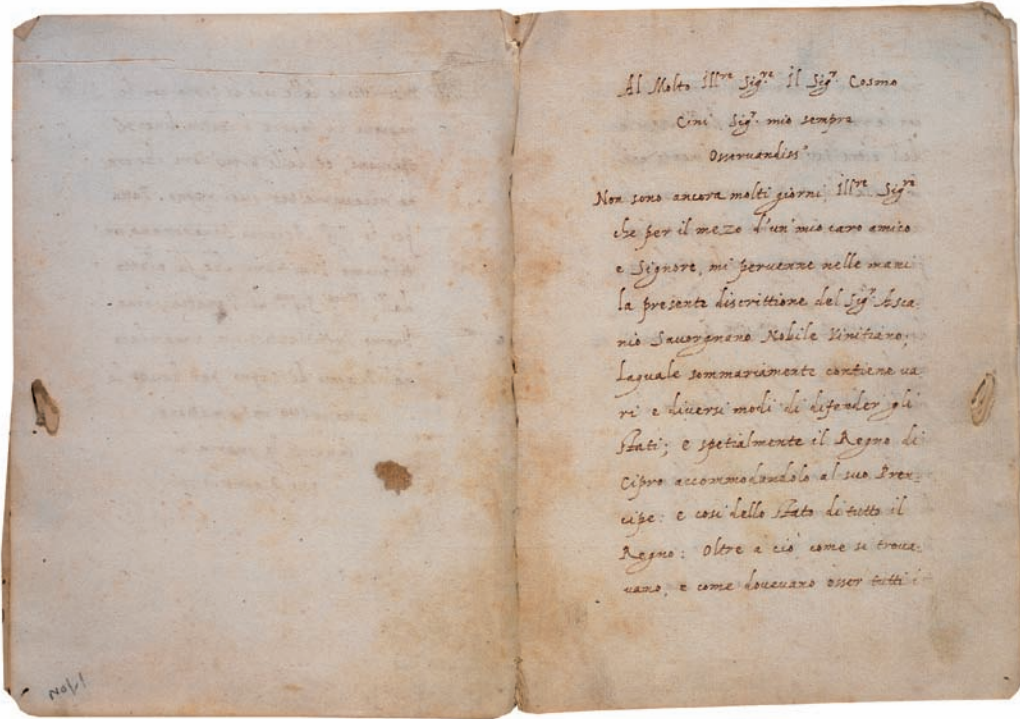 Al Molto Ill.re Sig.re Il Sig.r Cosmo
Cini Sig.r mio sempre
Osseruandiss.o
Non sono ancora molti giorni, Ill.re Sig.re
che per il mezo d'un mio caro amico
e Signore, mi peruenne nelle mani
la presente discrittione del Sig.r Asca-
nio Sauorgnano Nobile Vinitiano;
Laquale sommariamente contiene ua
ri e diuersi modi di difender gli
stati; e spetialmente il Regno di
Cipro accommodandolo al suo Pren-
cipe: e cosi dello stato di tutto il
Regno: Oltre a ciò come si troua-
uano, e come doueuano esser tutti i